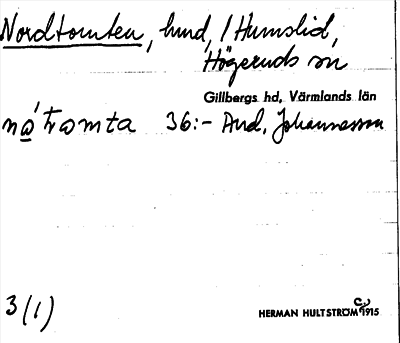 Nordtomten, hmd, / Humslid,
Högeruds sn
Gillbergs hd, Värmlands län
nåtromta 36:- And. Johannesson
3(1)
HERMAN HULTSTRÖM 1915